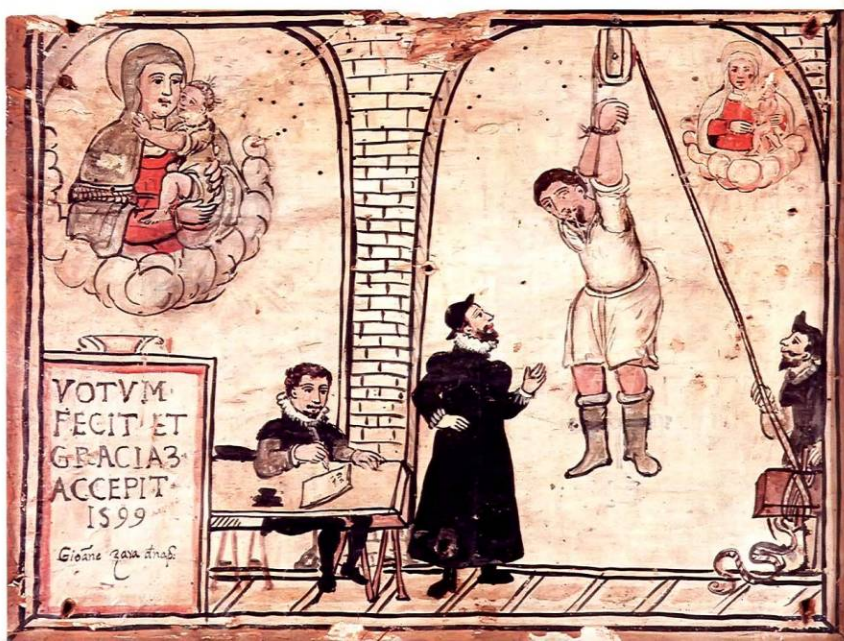 VOTVM·
FECIT ET
GRACIAƷ·
ACCEPIT·
1599
Gioãne zara